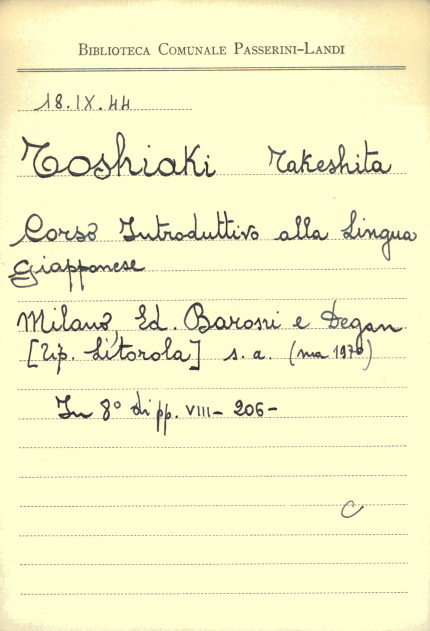 BIBLIOTECA COMUNALE PASSERINI-LANDI
18.IX.44
Toshiaki Takeshita
Corso Introduttivo alla Lingua
Giapponese
Milano, Ed. Baroni e Degan
[Tip. Litorola] s. a. (ma 1970)
In 8° di pp. VIII- 206-
C